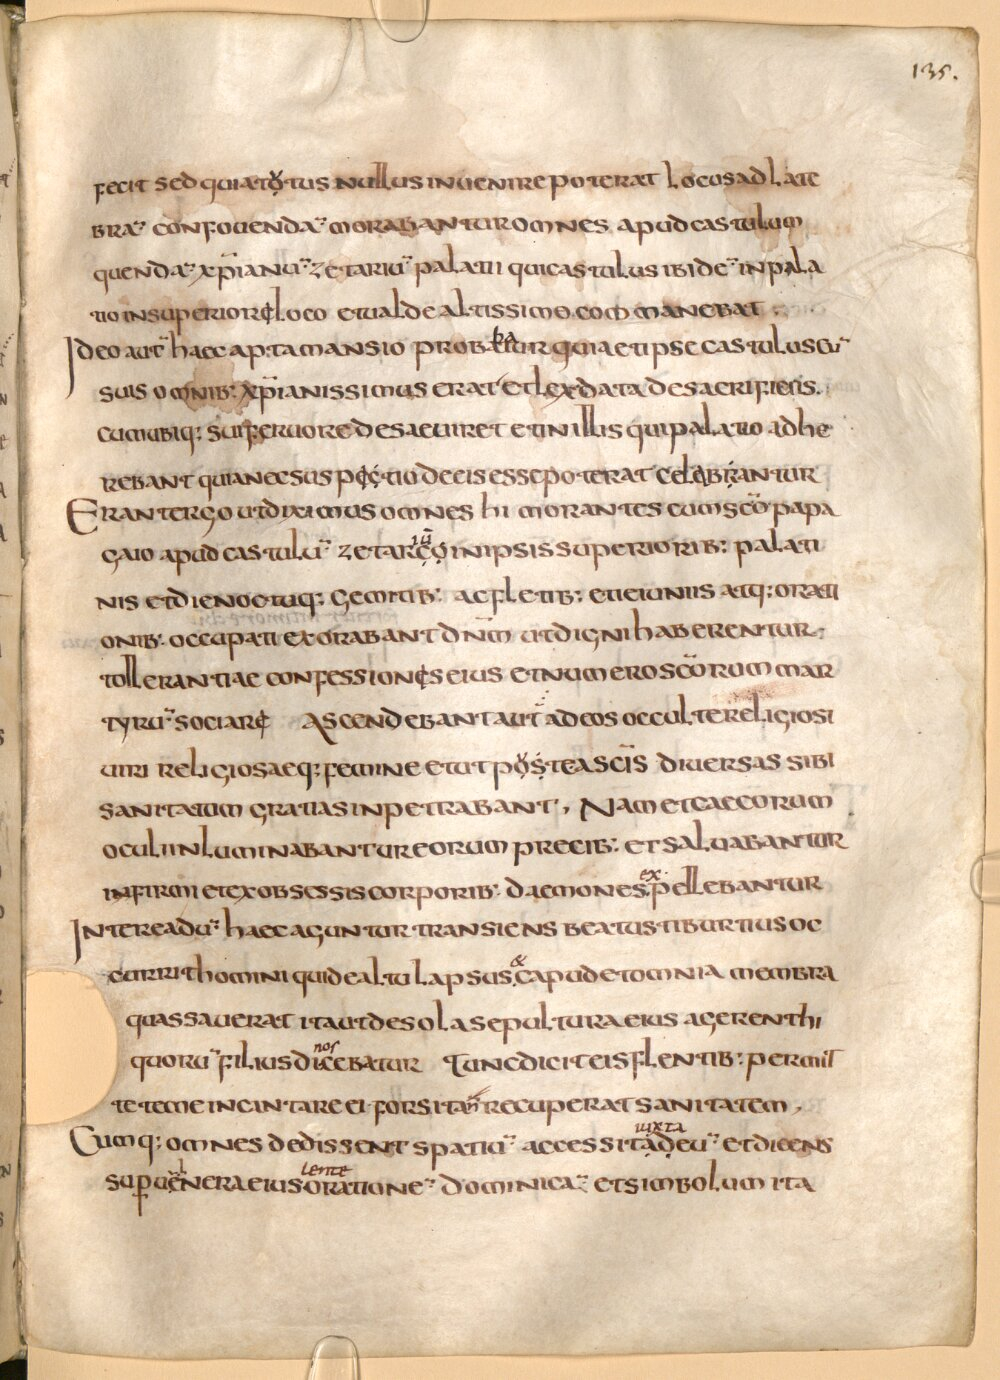 135.
fecit sed quia totus nullus inuenire poterat locus ad late
bra꞉ confouenda꞉ morabantur omnes apud castulum
quenda꞉ xp̄ianu꞉ zetariu꞉ palatii qui castulus ibide꞉ in pala
tio in superiore loco et ualde altissimo commanebat
Ideo aut̄ haec apta mansio probabatur quia et ipse castulus cu꞉
suis omnib: xp̄ianissimus erat et lex data de sacrificiis.
cum ubiq; sui feruore desaeuiret et in illis qui palatio adhe
rebant quia nec suspectio de eis esse poterat celebrantur
Erant ergo ut diximus omnes hi morantes cum sc̄o papa
gaio apud castulu꞉ zetariū in ipsis superiorib: palati
nis et die noctuq; gemitib: ac fletib: et ieiuniis atq: orati
onib: occupati exorabant dn̄m ut digni haberentur
tollerantiae confessiones eius et numero sc̄orum mar
tyru꞉ sociare Ascendebant aut̄ ad eos occulte religiosi
uiri religiosaeq; femine et ut post eascīs diuersas sibi
sanitatum gratias inpetrabant, Nam et caecorum
oculi inluminabantur eorum precib: et saluabantur
infirmi et ex obsessis corporib: daemones expellebantur
Interea du꞉ haec aguntur transiens beatus tiburtius oc
currit homini qui de alto lapsus & caput et omnia membra
quassauerat ita ut de sola sepultura eius agerent hi
quoru꞉ filius dinoscebatur Tunc dicit eis flentib: permit
te te me incintare ei forsitan recuperat sanitatem,
Cumq; omnes dedissent spatiu꞉ accessit iuxta eu꞉ et dicens
sup uulnera eius lente oratione꞉ dominica꞉ et simbolum ita